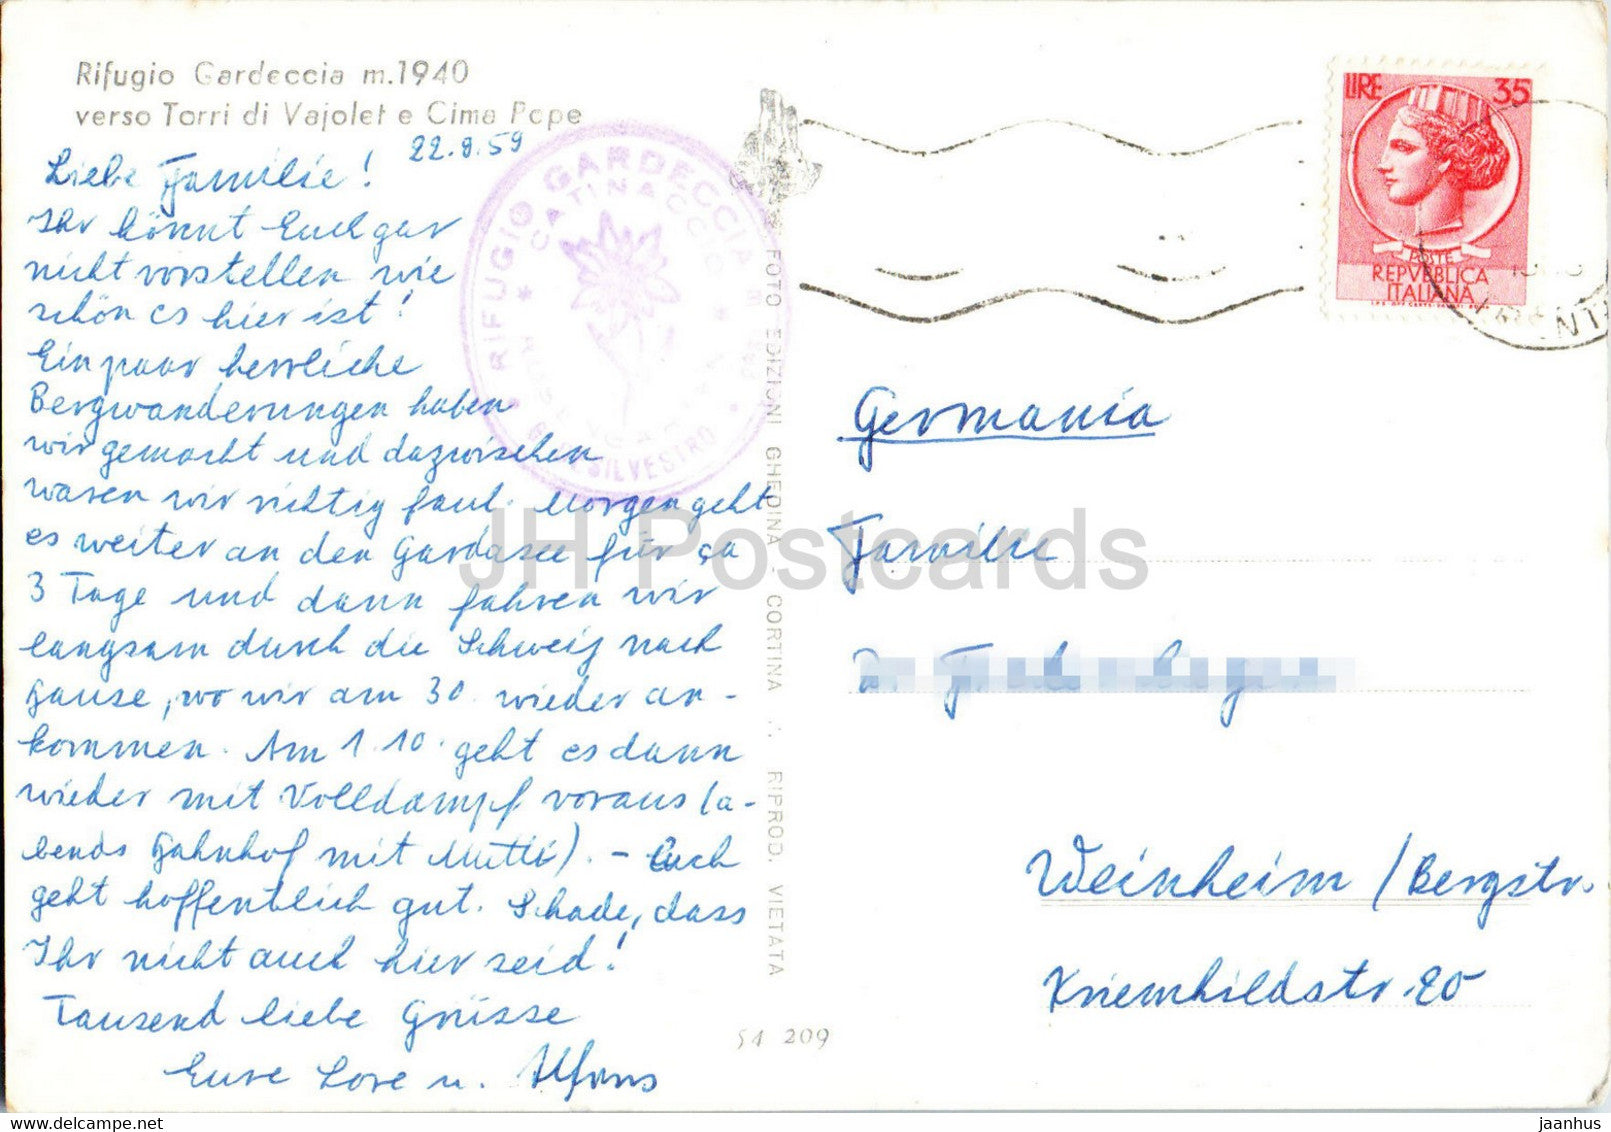 Rifugio Gardeccia m.1940
verso Torri di Vajolet e Cima Pope
22.9.59
Liebe Familie!
Ihr könnt Euch gar
nicht vorstellen wie
schön es hier ist!
Ein paar herrliche
Bergwanderungen haben
wir gemacht und dazwischen
waren wir richtig faul. Morgen geht
es weiter an den Gardasee für ca
3 Tage und dann fahren wir
langsam durch die Schweiz nach
Hause, wo wir am 30. wieder an-
kommen. Am 1.10. geht es dann
wieder mit Volldampf voraus (a-
bends Bahnhof mit Mutti). - Euch
geht hoffentlich gut. Schade, dass
Ihr nicht auch hier seid!
Tausend liebe Grüsse
Eure Lore u. Alfons
RIFUGIO GARDECCIA
CATINACCIO
SILVESTRO
FOTO EDIZIONI GHEDINA - CORTINA ∴ RIPROD. VIETATA
51 209
LIRE 35
POSTE
REPVBBLICA
ITALIANA
Germania
Familie
Weinheim / Bergstr.
Kriemhildstr. 20
JH Postcards
jaanhus